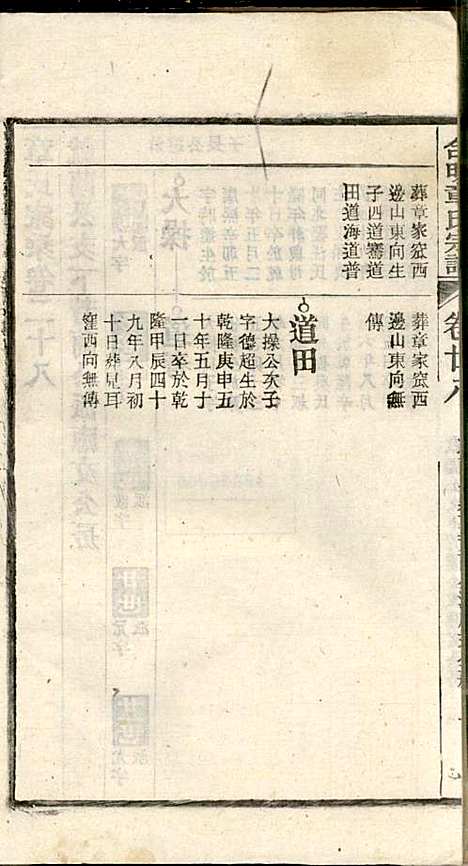 台明章氏宗譜
卷廿八
葬章家窊西
邊山東向生
子四道審道
田道海道普
葬章家窊西
邊山東向無
傳
道田
大操公次子
字德超生於
乾隆庚申五
十年五月十
一日卒於乾
隆甲辰四十
九年八月初
十日葬見耳
窪西向無傳